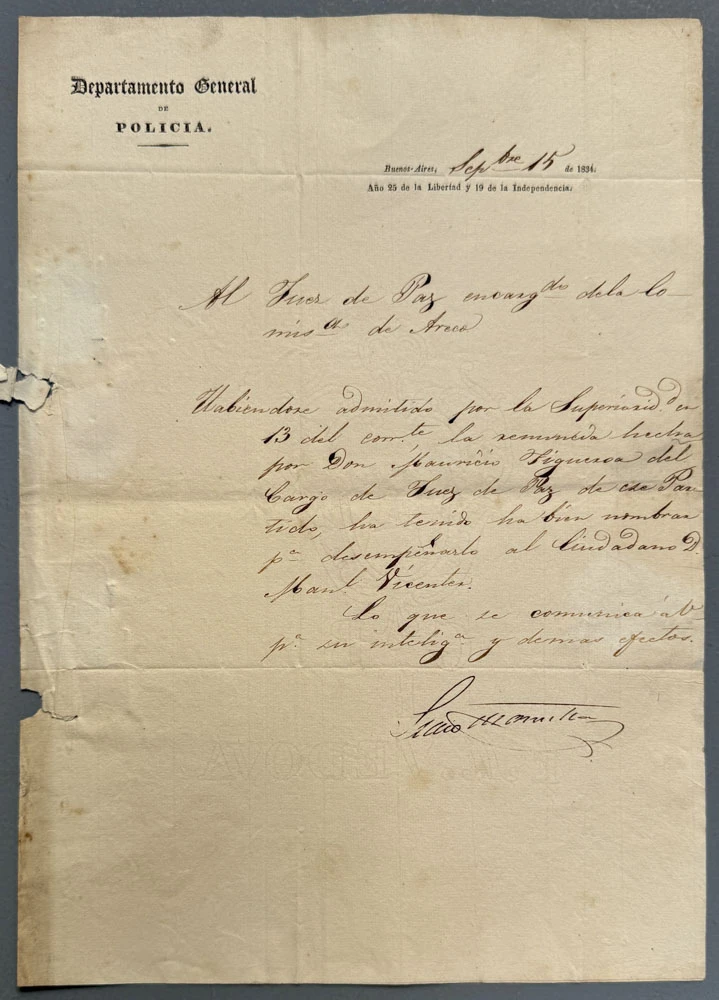 Departamento General
DE
POLICIA.
Buenos-Aires, Sepbre 15 de 1834.
Año 25 de la Libertad y 19 de la Independencia.
Al Juez de Paz encargdo dela Co-
misa de Areco
Habiendose admitido por la Superioridd en
13 del corrte la renuncia hecha
por Don Mauricio Figueroa del
Cargo de Juez de Paz de ese Par-
tido, ha tenido ha bien nombrar
pa desempeñarlo al Ciudadano D.
Manl. Vicenter.
Lo que se comunica á V.
pa su inteliga y demas efectos.